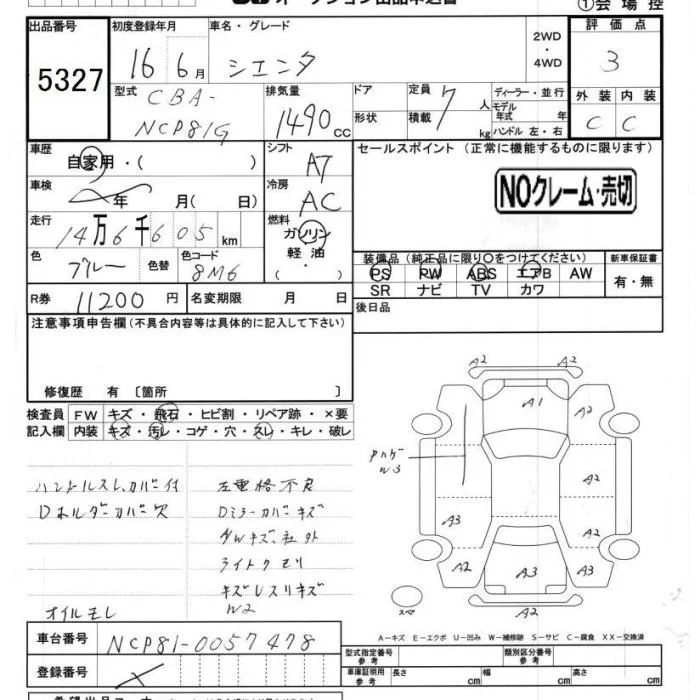 オークション出品申込書
①会場控
出品番号 5327
初度登録年月 16 6月
車名・グレード シエンタ
2WD ・ 4WD
評価点 3
型式 CBA-NCP81G
排気量 1490 cc
ドア 形状
定員 7 人
積載 kg
ディーラー・並行
モデル年式 年
ハンドル 左・右
外装 内装
C C
車歴 自家用・( )
シフト AT
セールスポイント (正常に機能するものに限ります)
NOクレーム・売切
車検 年 月( 日)
冷房 AC
走行 14万6千605 km
燃料 ガソリン 軽油 ( )
色 ブルー 色替
色コード 8M6
装備品 (純正品に限り○をつけてください)
新車保証書
PS PW ABS エアB AW
有・無
SR ナビ TV カワ
R券 11200円
名変期限 月 日
後日品
注意事項申告欄(不具合内容等は具体的に記入して下さい)
修復歴 有 〔箇所 〕
検査員記入欄
FW キズ・飛石・ヒビ割・リペア跡・×要
内装 キズ・汚レ・コゲ・穴・スレ・キレ・破レ
ハンドルスレ、カバー付
Dホルダーカバー欠
左電格不良
Dミラーカバーキズ
ライトクモリ
キズレスリキズ
W2
オイルモレ
A2 A2
A1 A2
Pハゲ
W3
A2
A3 A2
A2 A3 A2
A2
スペア
A-キズ E-エクボ U-凹み W-補修跡 S-サビ C-腐食 XX-交換済
車台番号 NCP81-0057478
登録番号
型式指定番号 参考
類別区分番号 参考
車庫証明用 参考 長さ cm 幅 cm 高さ cm